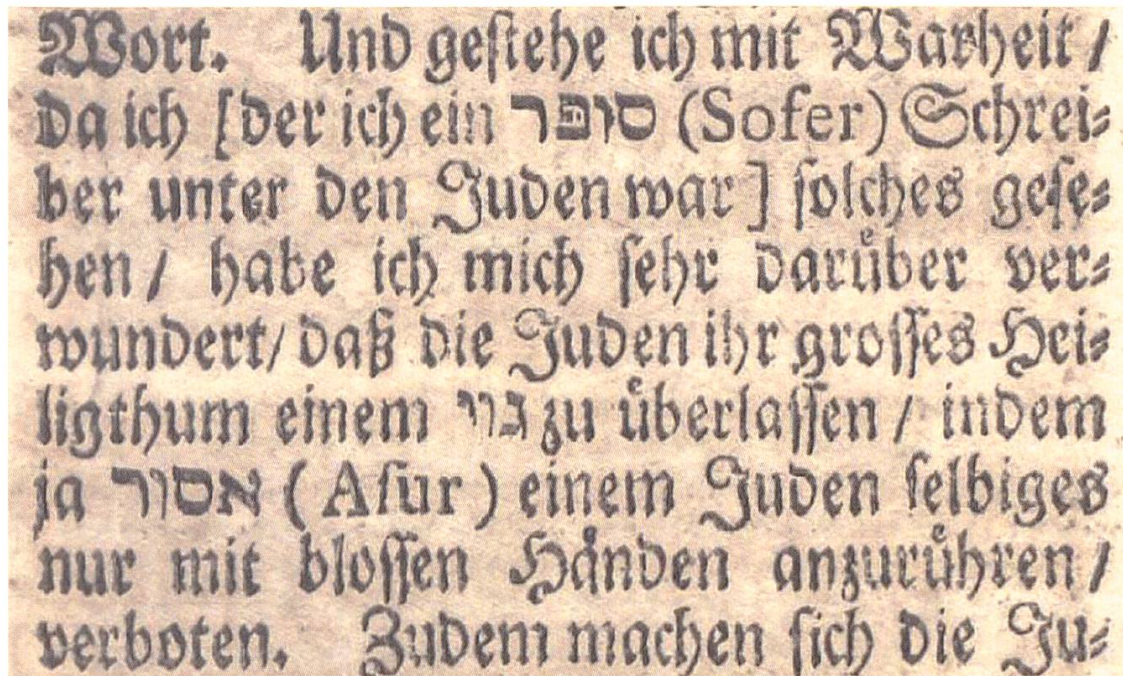 Wort. Und geſtehe ich mit Warheit /
da ich [der ich ein סופר (Sofer) Schrei⸗
ber unter den Juden war] ſolches geſe⸗
hen / habe ich mich ſehr darüber ver⸗
wundert / daß die Juden ihr groſſes Hei⸗
ligthum einem גוי zu überlaſſen / indem
ja אסור (Aſur) einem Juden ſelbiges
nur mit bloſſen Händen anzurühren /
verboten. Zudem machen ſich die Ju⸗